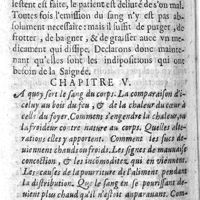 lestent est faite, le patient est deliuré de s'on mal.
Toutes fois l'emission du sang n'y est pas abs
solument necessaire: mais il suffit de purger, de
frotter, de baigner, & de graisser auec vn me
dicament qui dissipe. Declarons donc mainte
nant qu'elles sont les indispositions qui ont
besoin de la Saignée.
CHAPITRE V.
A quoy sert le sang du corps. La comparaison d'i
celuy au bois du feu, & de la chaleur du cœur à
celle du foyer. Comment s'engendre la chaleur, ou
la froideur contre nature au corps. Quelles alte
rations elles y apportent. Comment les sucs de
uiennent chauds ou froids. Les signes de mauuaise
concoction, & les incommoditez qui en viennent
Les causes de la pourriture de l'aliment pendant
la distribution. Que le sang en se pourrissant de
uient plus chaud qu'il n'estoit auparauant. Com